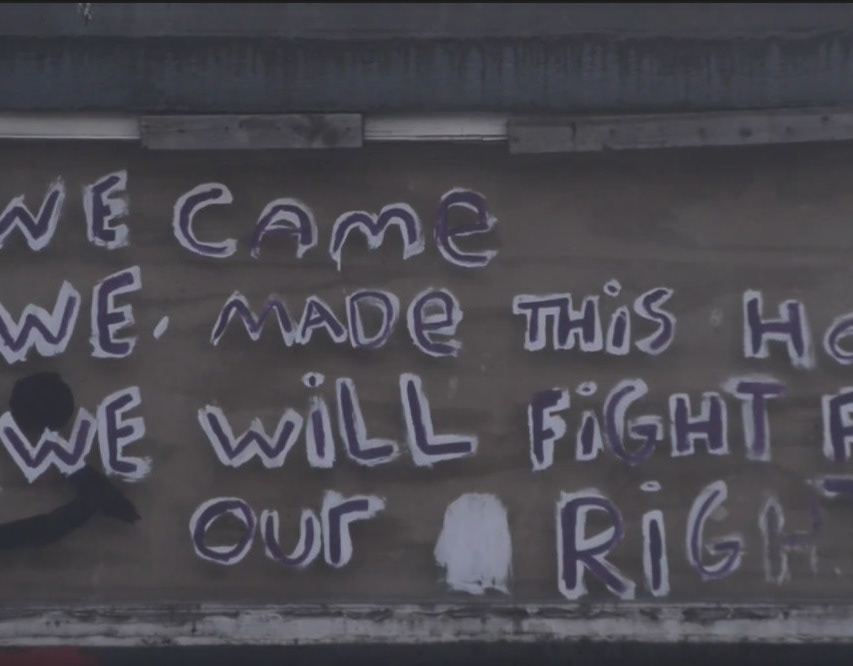 WE CAME
WE. MADE THiS
WE WiLL FiGHT
OUr